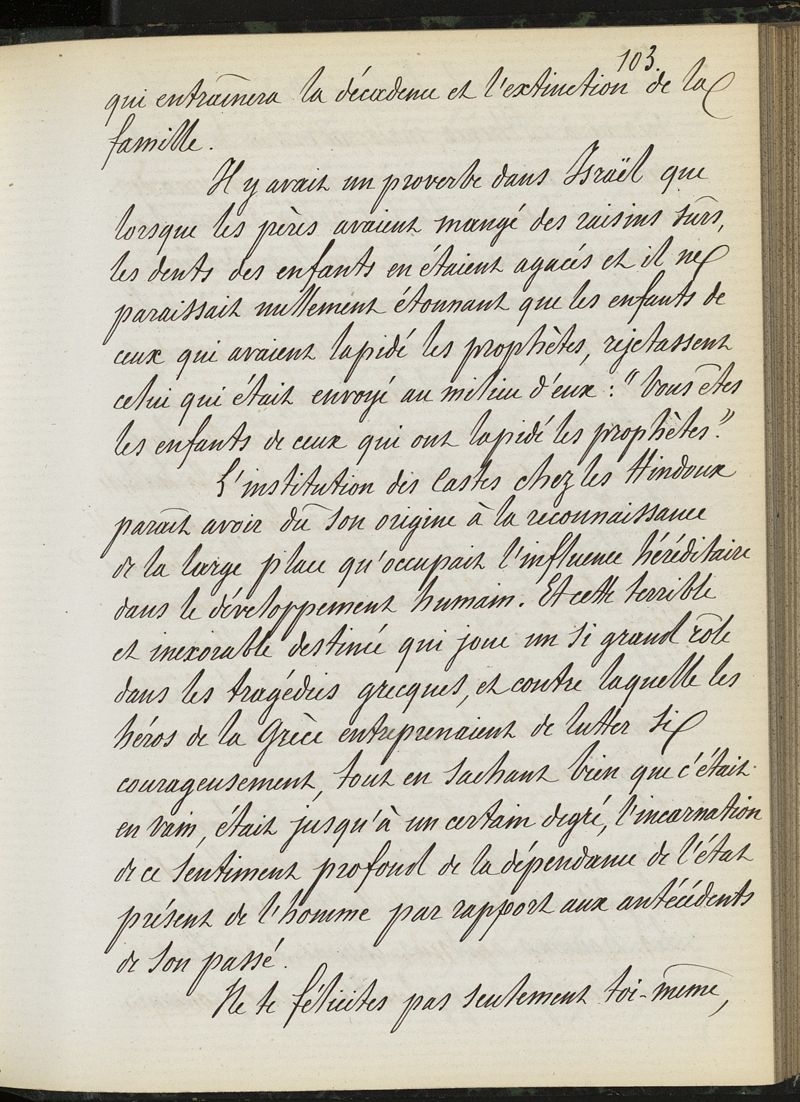 103.
qui entraînera la décadence et l'extinction de la
famille.
Il y avait un proverbe dans Israël que
lorsque les pères avaient mangé des raisins sûrs,
les dents des enfants en étaient agacés et il ne
paraissait nullement étonnant que les enfants de
ceux qui avaient lapidé les prophètes, rejetassent
celui qui était envoyé au milieu d'eux : "Vous êtes
les enfants de ceux qui ont lapidé les prophètes".
L'institution des Castes chez les Hindoux
paraît avoir dû son origine à la reconnaissance
de la large place qu'occupait l'influence héréditaire
dans le développement humain. Et cette terrible
et inexorable destinée qui joue un si grand rôle
dans les tragédies grecques, et contre laquelle les
héros de la Grèce entreprenaient de lutter si
courageusement, tout en sachant bien que c'était
en vain, était jusqu'à un certain degré, l'incarnation
de ce sentiment profond de la dépendance de l'état
présent de l'homme par rapport aux antécédents
de son passé.
Ne te félicites pas seulement toi-même,